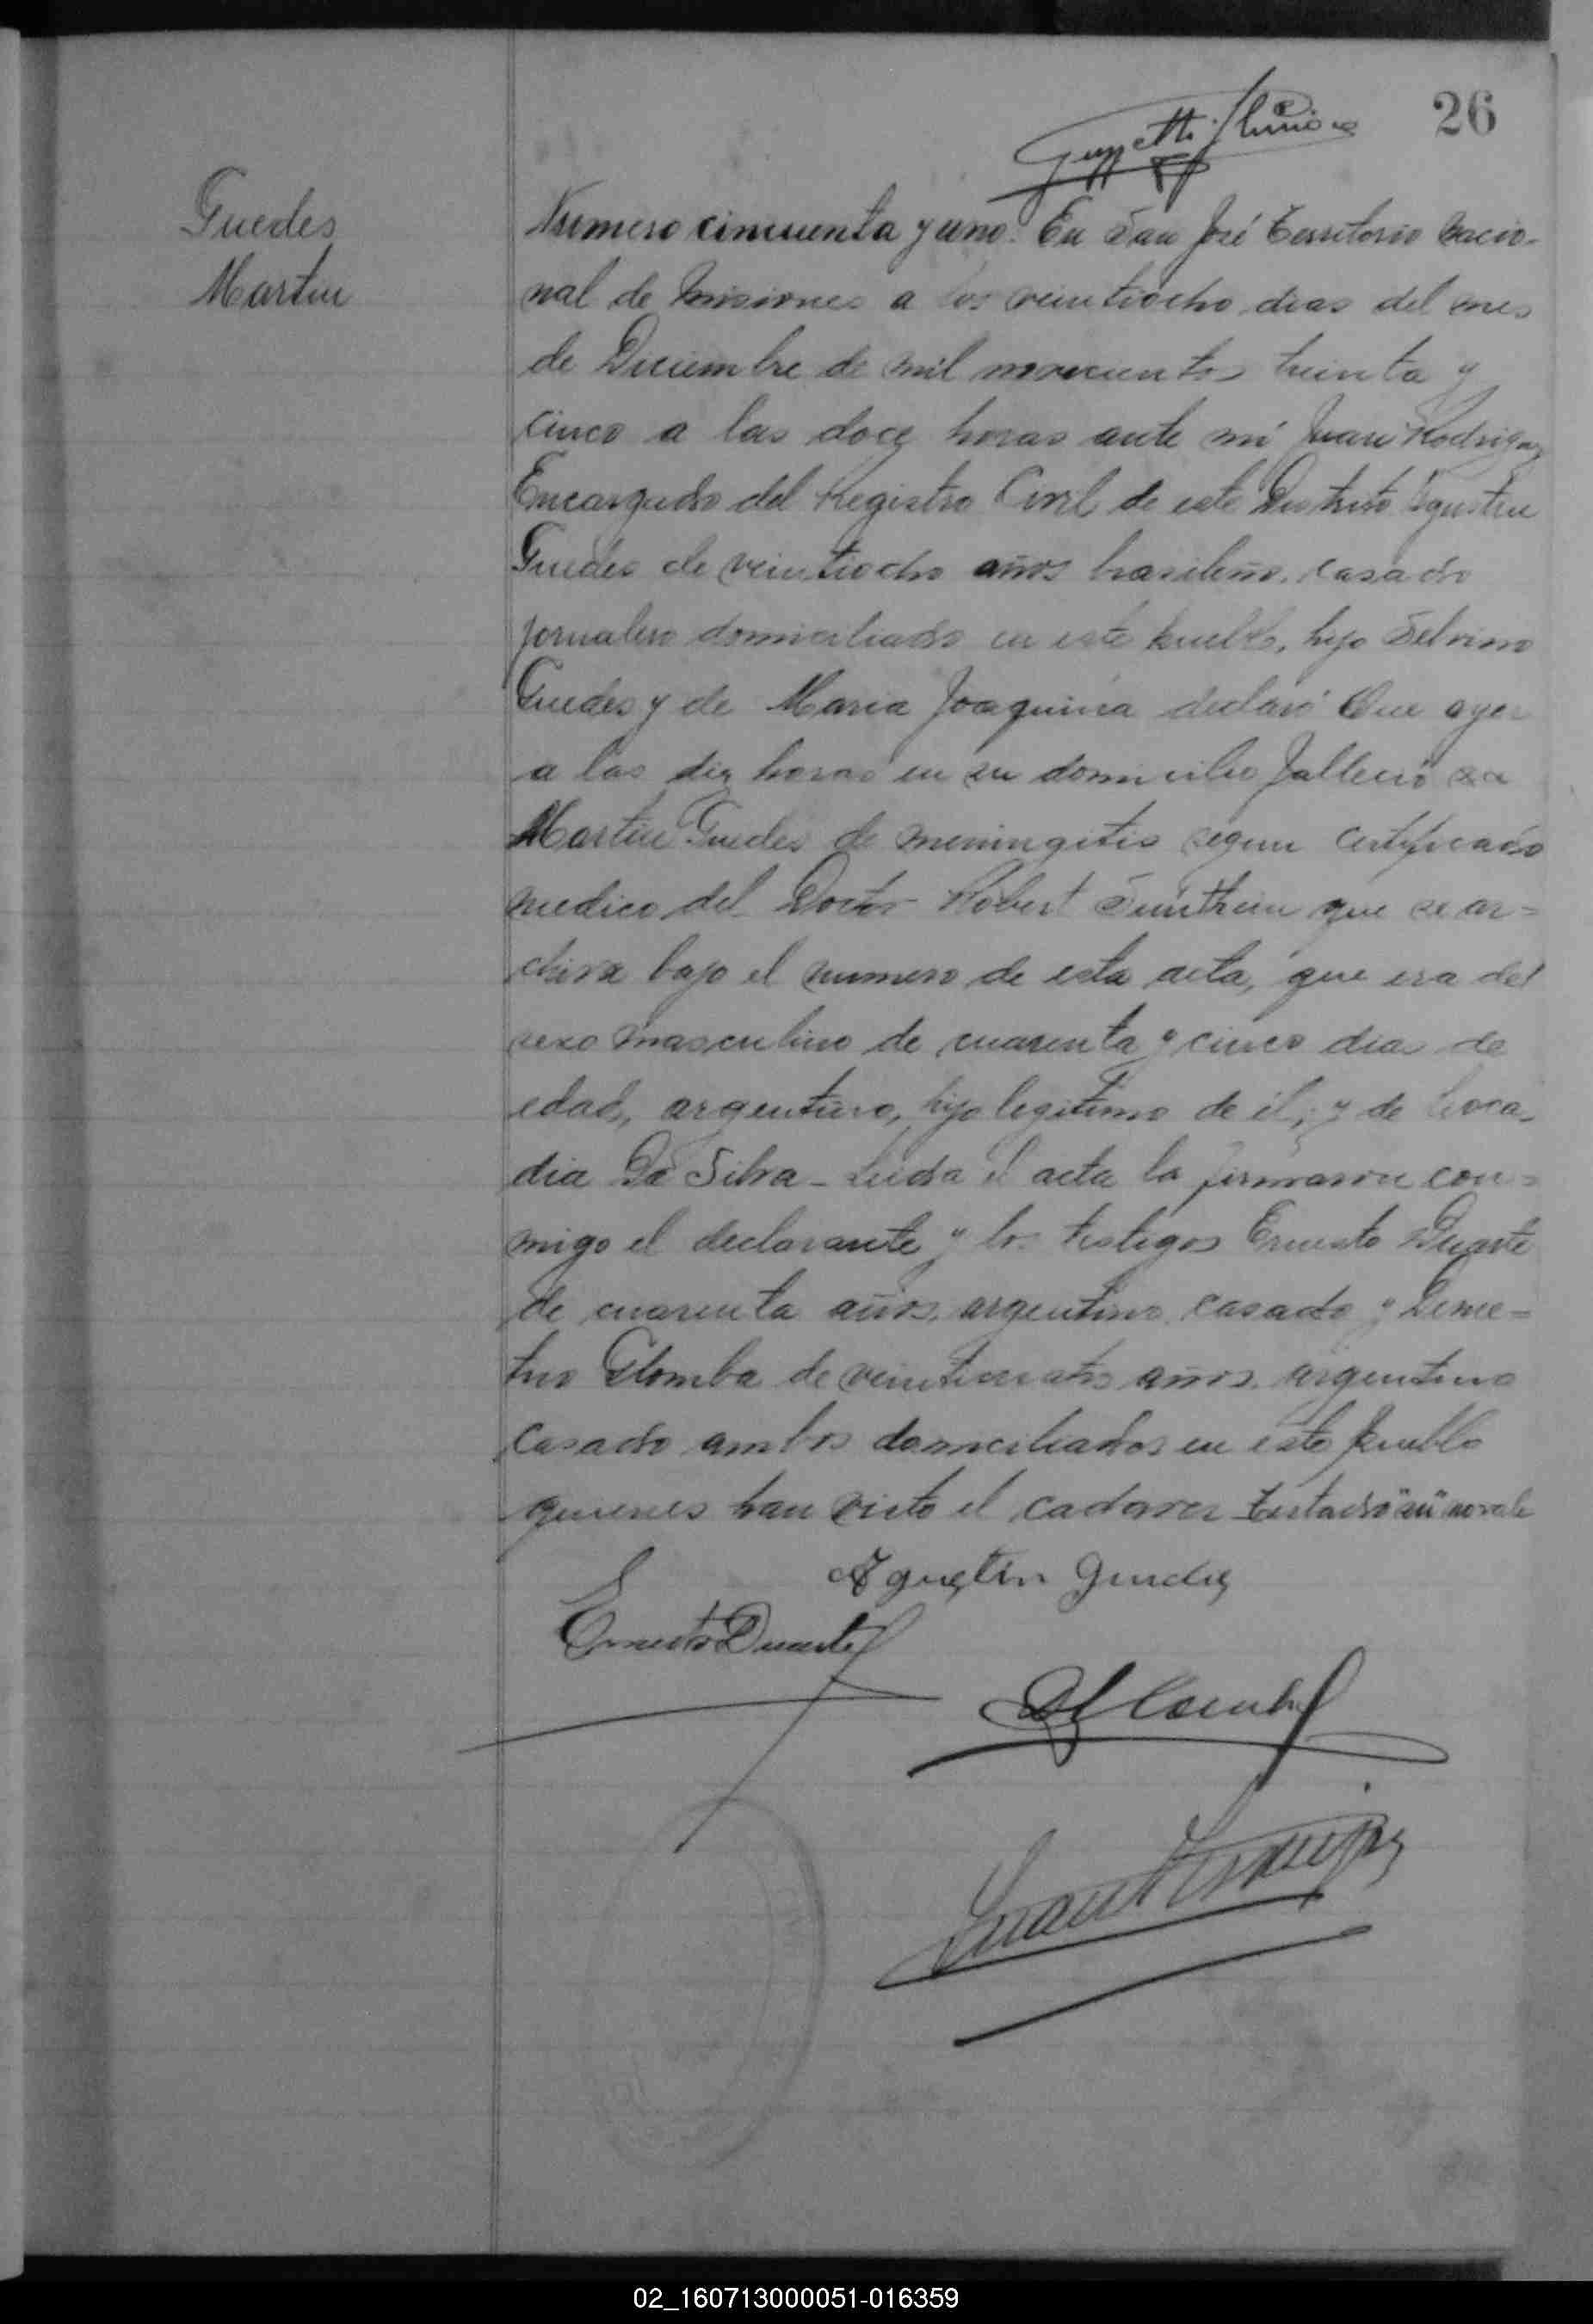 26
Guedes
Martin
Numero cincuenta y uno. En San José Territorio Nacio-
nal de Misiones a los veintiocho dias del mes
de Diciembre de mil novecientos treinta y
cinco a las doce horas ante mi Juan Rodriguez
Encargado del Registro Civil de este Distrito Agustin
Guedes de veintiocho años brasileño, casado
jornalero domiciliado en este pueblo, hijo Selvino
Guedes y de Maria Joaquina declaró Que ayer
a las diez horas en su domicilio falleció su
Martin Guedes de meningitis segun certificado
medico del Doctor Robert que se ar=
chiva bajo el numero de esta acta, que era del
sexo masculino de cuarenta y cinco dias de
edad, argentino, hijo legitimo de él, y de Leoca-
dia Da Silva - Leida el acta la firmaron con=
migo el declarante y los testigos Ernesto Duarte
de cuarenta años, argentino, casado y Deme-
trio Glomba de veinticuatro años, argentino
casado ambos domiciliados en este pueblo
quienes han visto el cadaver Testado "su" no vale
Agustin Guedes
Ernesto Duarte
Juan Rodriguez
02_160713000051-016359